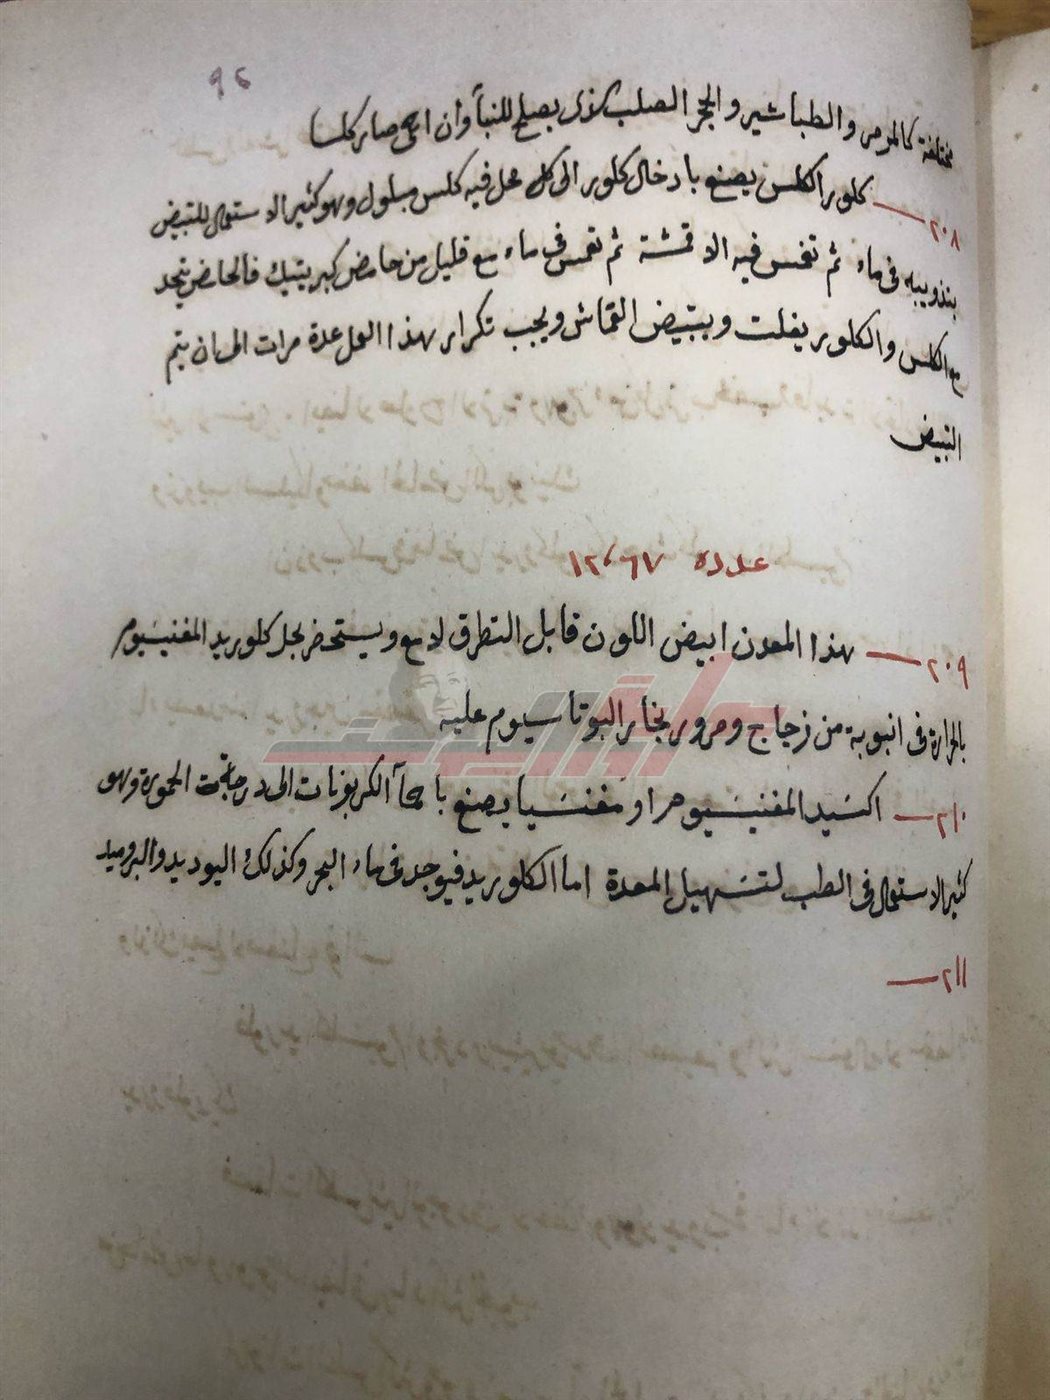 ٩٤
مختلفة كالمرمر والطباشير والحجر الصلب الذي يصلح للبنآ وان احمي صار كلسا
٢٠٨— كلور الكلس يصنع بادخال كلور الى كل محل فيه كلس مبلول وهو كثير الاستعمال للتبيض
بتذويبه في ماء ثم تغمس فيه الاقمشة ثم تغمس في ماء مع قليل من حامض كبريتيك فالحامض يتحد
مع الكلس والكلور يفلت ويبيض القماش ويجب تكرار هذا العمل عدة مرات الى ان يتم
التبيض
عدده ١٢،٦٧
٢٠٩— هذا المعدن ابيض اللون قابل التطرق لامع ويستحضر بحل كلوريد المغنيسيوم
بالحرارة في انبوبة من زجاج ومرور بخار البوتاسيوم عليه
٢١٠— اكسيد المغنيسيوم او مغنسيا يصنع باحمآ الكربونات الى درجة تحت الحمورة وهو
كثير الاستعمال في الطب لتسهيل المعدة اما الكلوريد فيوجد في ماء البحر وكذلك اليوديد والبروميد
٢١١—